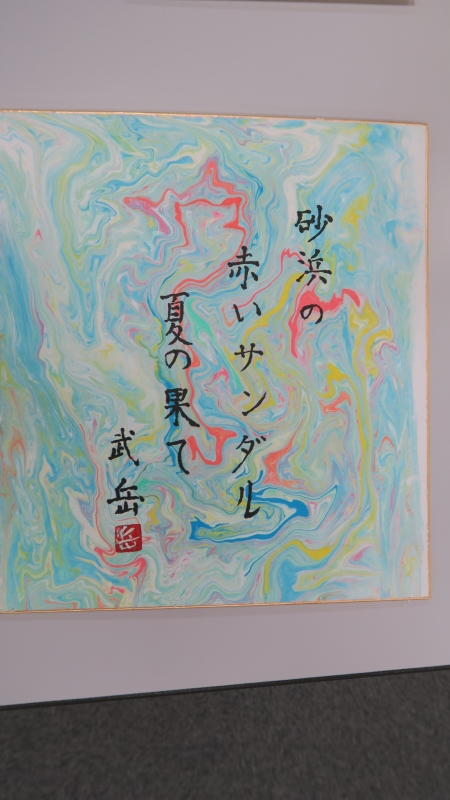 砂浜の
赤いサンダル
夏の果て
武岳
岳